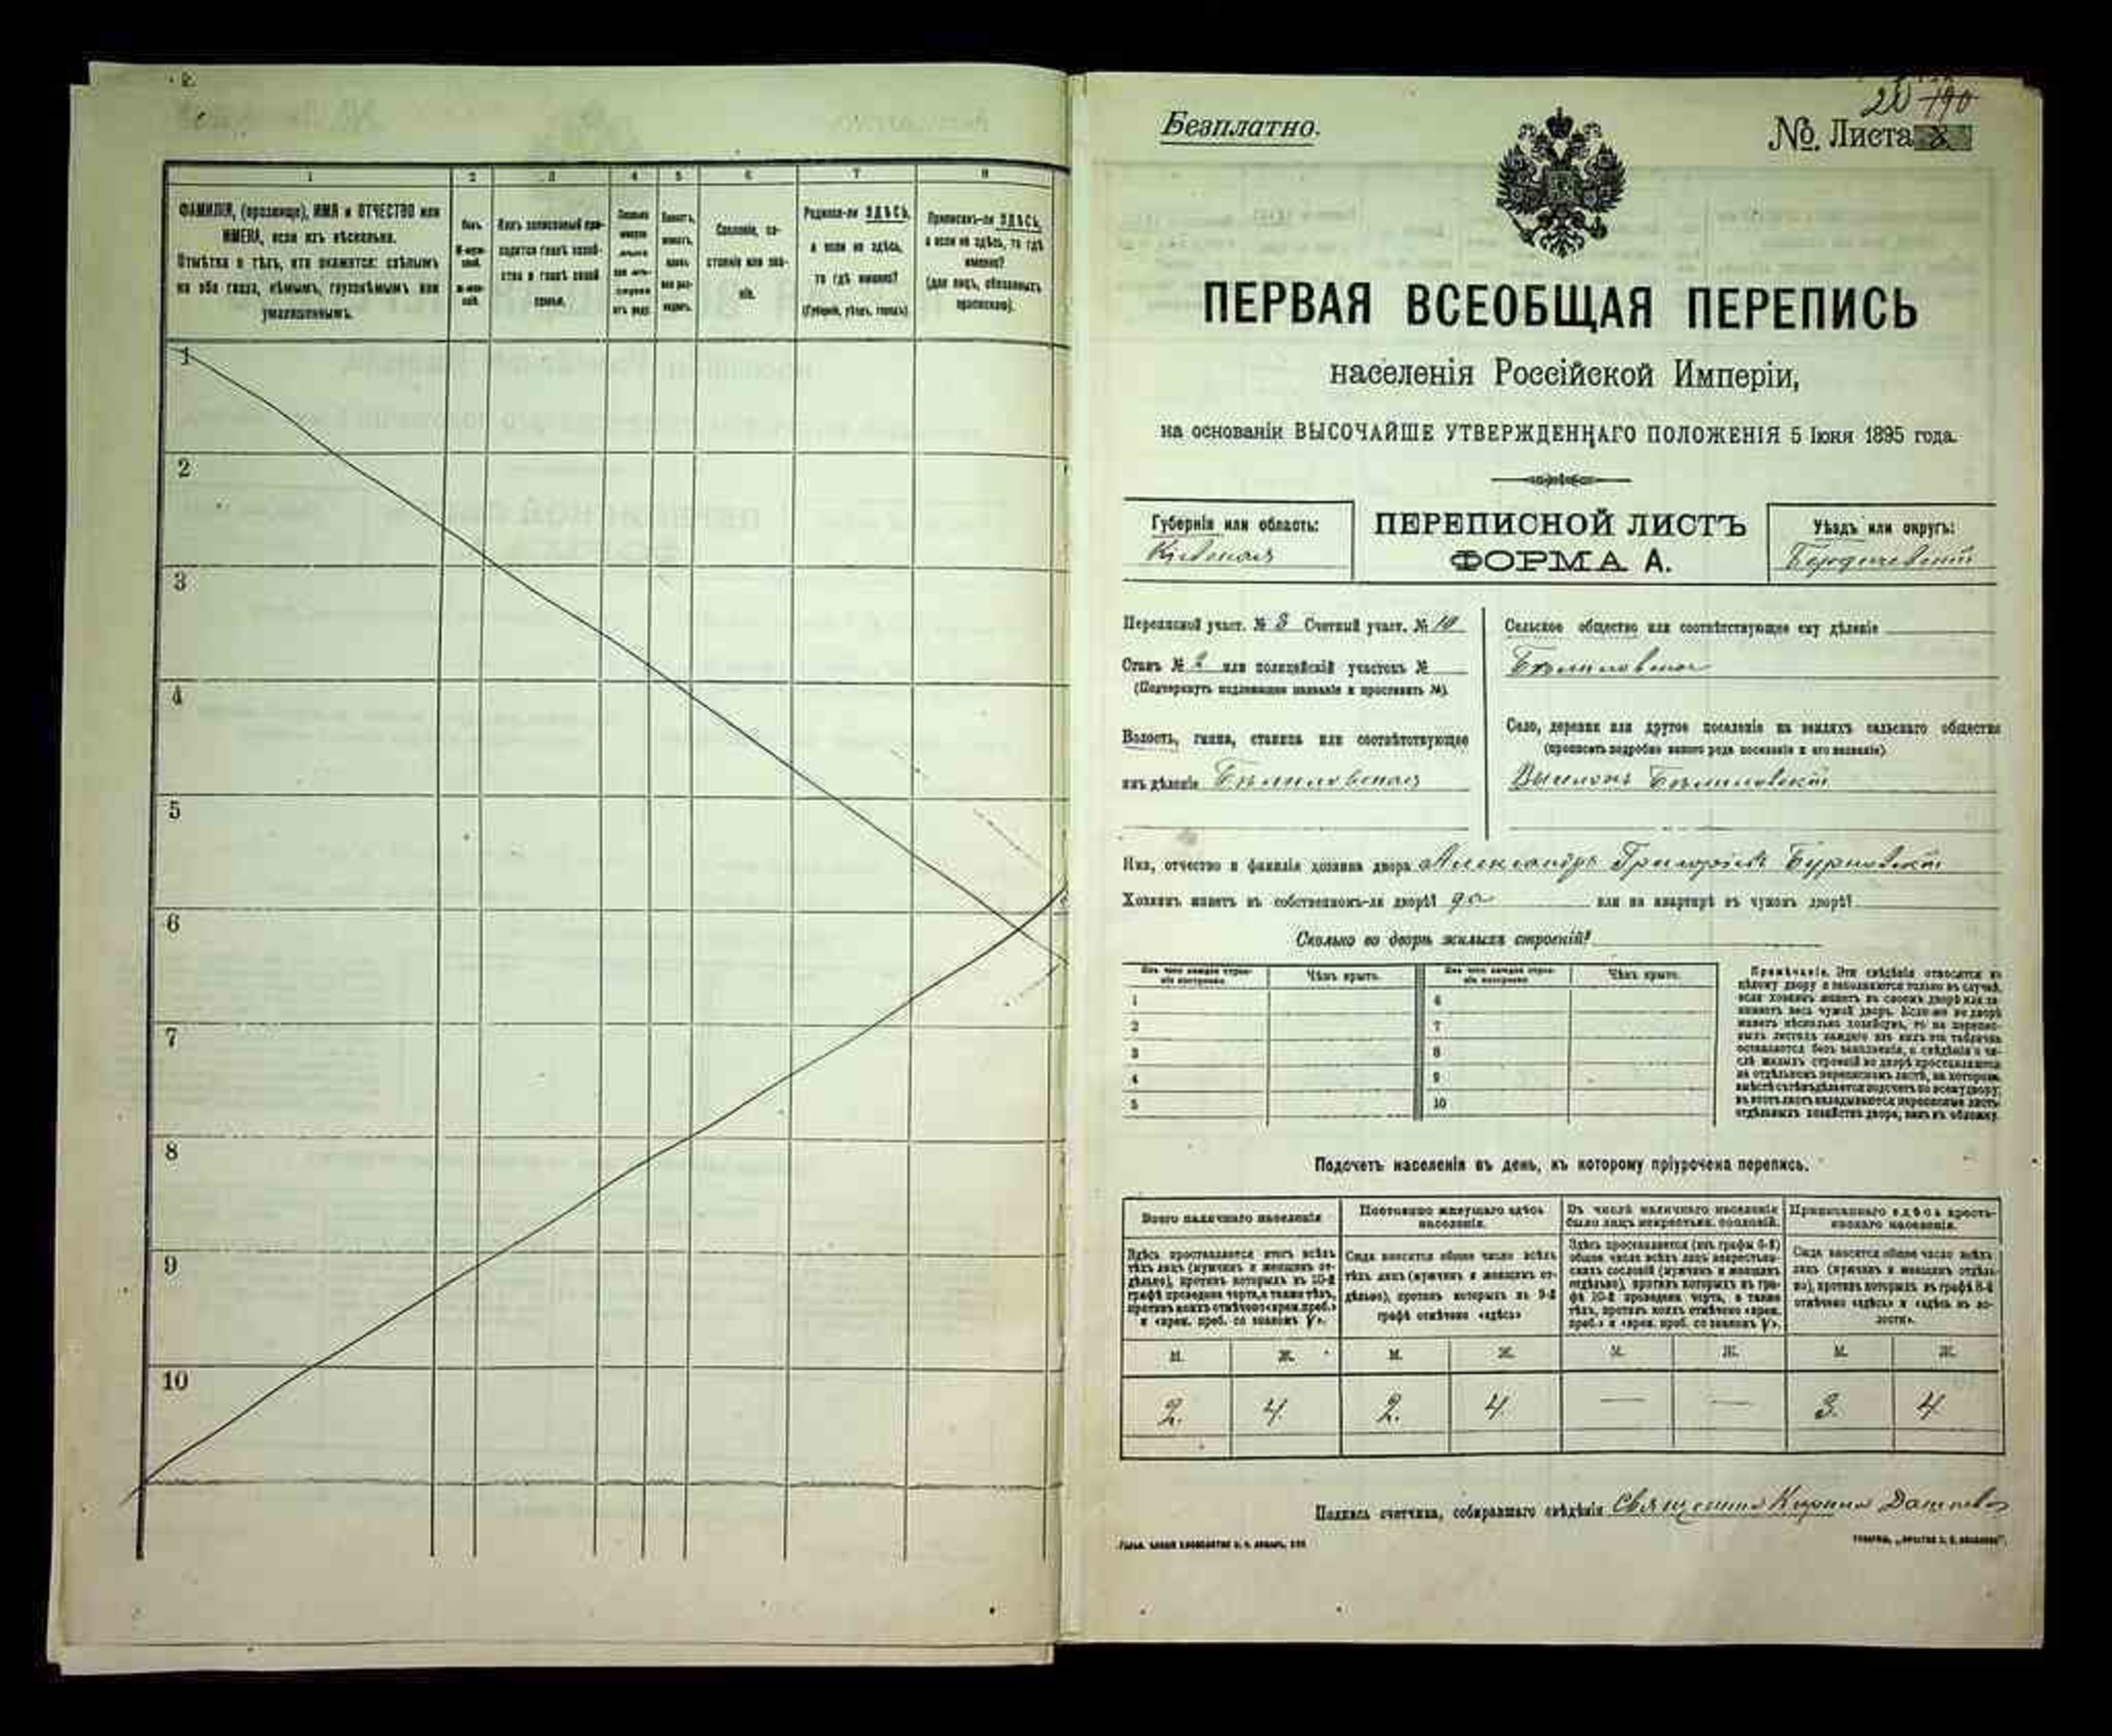 2.
1 2 3 4 5 6 7 8
ФАМИЛІЯ, (прозвище), ИМЯ и ОТЧЕСТВО или ИМЕНА, если ихъ нѣсколько.
Отмѣтка о тѣхъ, кто окажется: слѣпымъ на оба глаза, нѣмымъ, глухонѣмымъ или умалишеннымъ.
Полъ.
М-муж-
ской.
Ж-жен-
скій.
Какъ записанный при-
ходится главѣ хозяй-
ства и главѣ своей
семьи.
Сколько
минуло
лѣтъ
или мѣ-
сяцевъ
отъ роду.
Холостъ,
женатъ,
вдовъ
или раз-
веденъ.
Сословіе, со-
стояніе или зва-
ніе.
Родился-ли ЗДѢСЬ,
а если не здѣсь,
то гдѣ именно?
(Губернія, уѣздъ, городъ).
Приписанъ-ли ЗДѢСЬ,
а если не здѣсь, то гдѣ
именно?
(для лицъ, обязанныхъ
припискою).
1
2
3
4
5
6
7
8
9
10
Безплатно.
20 190
№. Листа
ПЕРВАЯ ВСЕОБЩАЯ ПЕРЕПИСЬ
населенія Россійской Имперіи,
на основаніи ВЫСОЧАЙШЕ УТВЕРЖДЕННАГО ПОЛОЖЕНІЯ 5 Іюня 1895 года.
Губернія или область:
Кіевская
ПЕРЕПИСНОЙ ЛИСТЪ
ФОРМА А.
Уѣздъ или округъ:
Бердичевскій
Переписной участ. № 3 Счетный участ. № 10
Станъ № 2 или полицейскій участокъ №
(Подчеркнуть подлежащее названіе и проставить №).
Волость, гмина, станица или соотвѣтствующее
имъ дѣленіе Бѣлиловская
Сельское общество или соотвѣтствующее ему дѣленіе
Бѣлиловское
Село, деревня или другое поселеніе на земляхъ сельскаго общества
(прописать подробно какого рода поселеніе и его названіе)
Выселокъ Бѣлиловскій
Имя, отчество и фамилія хозяина двора Александръ Григорьевъ Бурковскій
Хозяинъ живетъ въ собственномъ-ли дворѣ? да или на квартирѣ въ чужомъ дворѣ?
Сколько во дворѣ жилыхъ строеній?
Изъ чего каждое строе-
ніе построено.
Чѣмъ крыто.
Изъ чего каждое строе-
ніе построено.
Чѣмъ крыто.
1 6
2 7
3 8
4 9
5 10
Примѣчаніе. Эти свѣдѣнія относятся къ
цѣлому двору и заполняются только въ случаѣ,
если хозяинъ живетъ въ своемъ дворѣ или за-
нимаетъ весь чужой дворъ. Если-же во дворѣ
живетъ нѣсколько хозяйствъ, то на перепис-
ныхъ листахъ каждаго изъ нихъ эта табличка
оставляется безъ заполненія, а свѣдѣнія о чи-
слѣ жилыхъ строеній во дворѣ проставляются
на отдѣльномъ переписномъ листѣ, на которомъ
вмѣстѣ съ тѣмъ дѣлается подсчетъ по всему двору;
въ этотъ листъ вкладываются переписные листы
отдѣльныхъ хозяйствъ двора, какъ въ обложку.
Подсчетъ населенія въ день, къ которому пріурочена перепись.
Всего наличнаго населенія
Постоянно живущаго здѣсь
населенія.
Въ числѣ наличнаго населенія
было лицъ некрестьян. сословій.
Приписаннаго здѣсь кресть-
янскаго населенія.
Здѣсь проставляется итогъ всѣхъ
тѣхъ лицъ (мужчинъ и женщинъ от-
дѣльно), противъ которыхъ въ 10-й
графѣ проведена черта, а также тѣхъ,
противъ коихъ отмѣчено «врем. преб.»
и «врем. преб. со знакомъ V».
Сюда вносится общее число всѣхъ
тѣхъ лицъ (мужчинъ и женщинъ от-
дѣльно), противъ которыхъ въ 9-й
графѣ отмѣчено «здѣсь»
Здѣсь проставляется (изъ графы 6-й)
общее число всѣхъ лицъ некрестьян-
скихъ сословій (мужчинъ и женщинъ
отдѣльно), противъ которыхъ въ гра-
фѣ 10-й проведена черта, а также
тѣхъ, противъ коихъ отмѣчено «врем.
преб.» и «врем. преб. со знакомъ V».
Сюда вносится общее число всѣхъ
лицъ (мужчинъ и женщинъ отдѣль-
но), противъ которыхъ въ графѣ 8-й
отмѣчено «здѣсь» и «здѣсь въ во-
лости».
М. Ж. М. Ж. М. Ж. М. Ж.
2. 4 2. 4 — — 3. 4
Подпись счетчика, собиравшаго свѣдѣнія Священникъ Кирилл